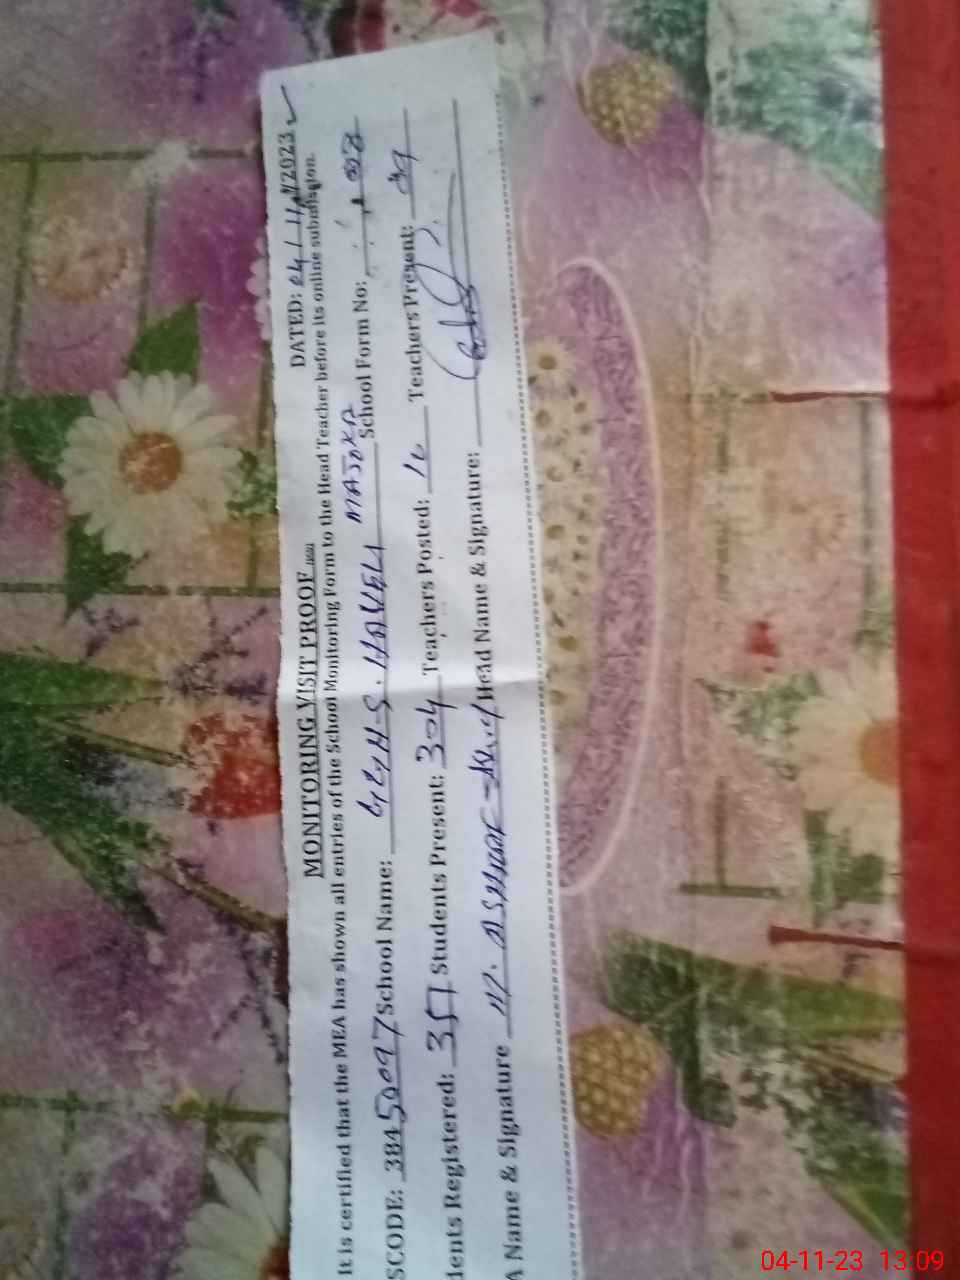 DATED: 04/11/2023
MONITORING VISIT PROOF
It is certified that the MEA has shown all entries of the School Monitoring Form to the Head Teacher before its online submission.
SCODE: 38450097 School Name: GGHS. HAVELI MAJOKA School Form No:
dents Registered: 357 Students Present: 304 Teachers Posted: 10 Teachers Present: 09
A Name & Signature M. ASHRAF Head Name & Signature:
04-11-23 13:09